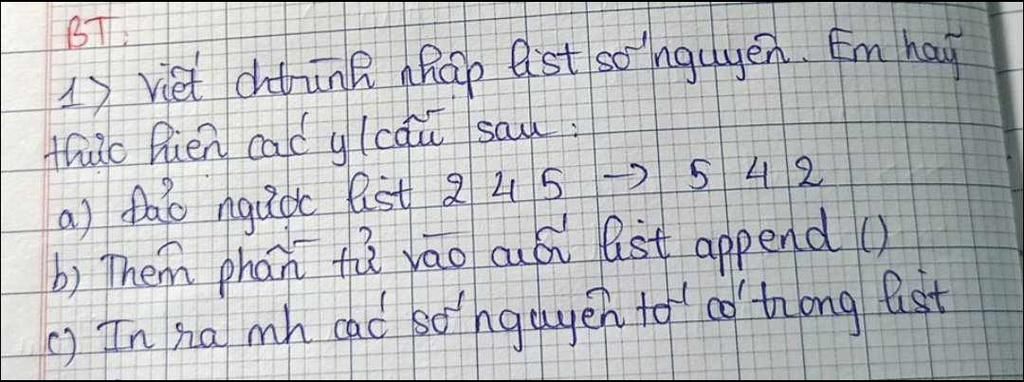 BT:
1) Viết chtrình nhập list số nguyên. Em hãy
thực hiện các y/cầu sau:
a) Đảo ngược list 2 4 5 → 5 4 2
b) Thêm phần tử vào cuối list append ()
c) In ra mh các số nguyên tố có trong list